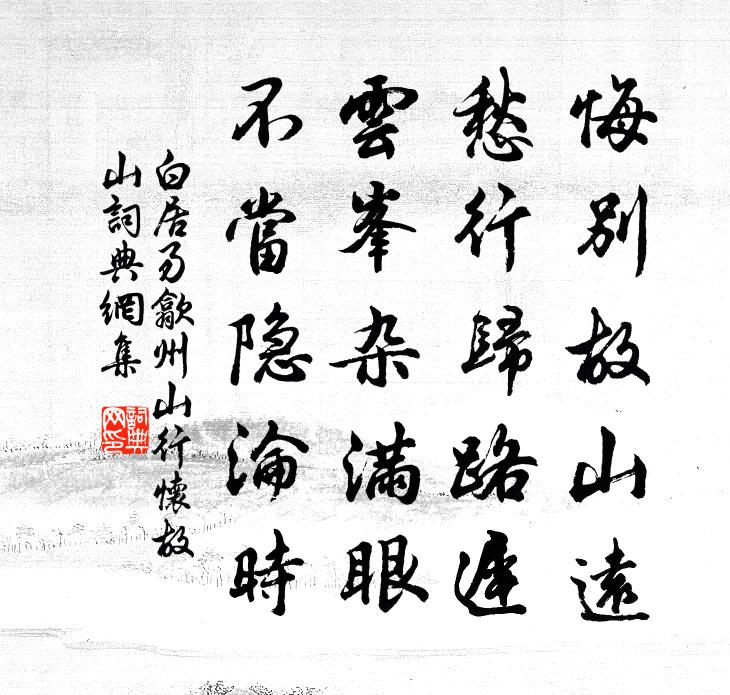 悔別故山遠
愁行歸路遲
雲峯杂滿眼
不當隐淪時
白居易歙州山行懷故
山詞典網集
詞典
网印